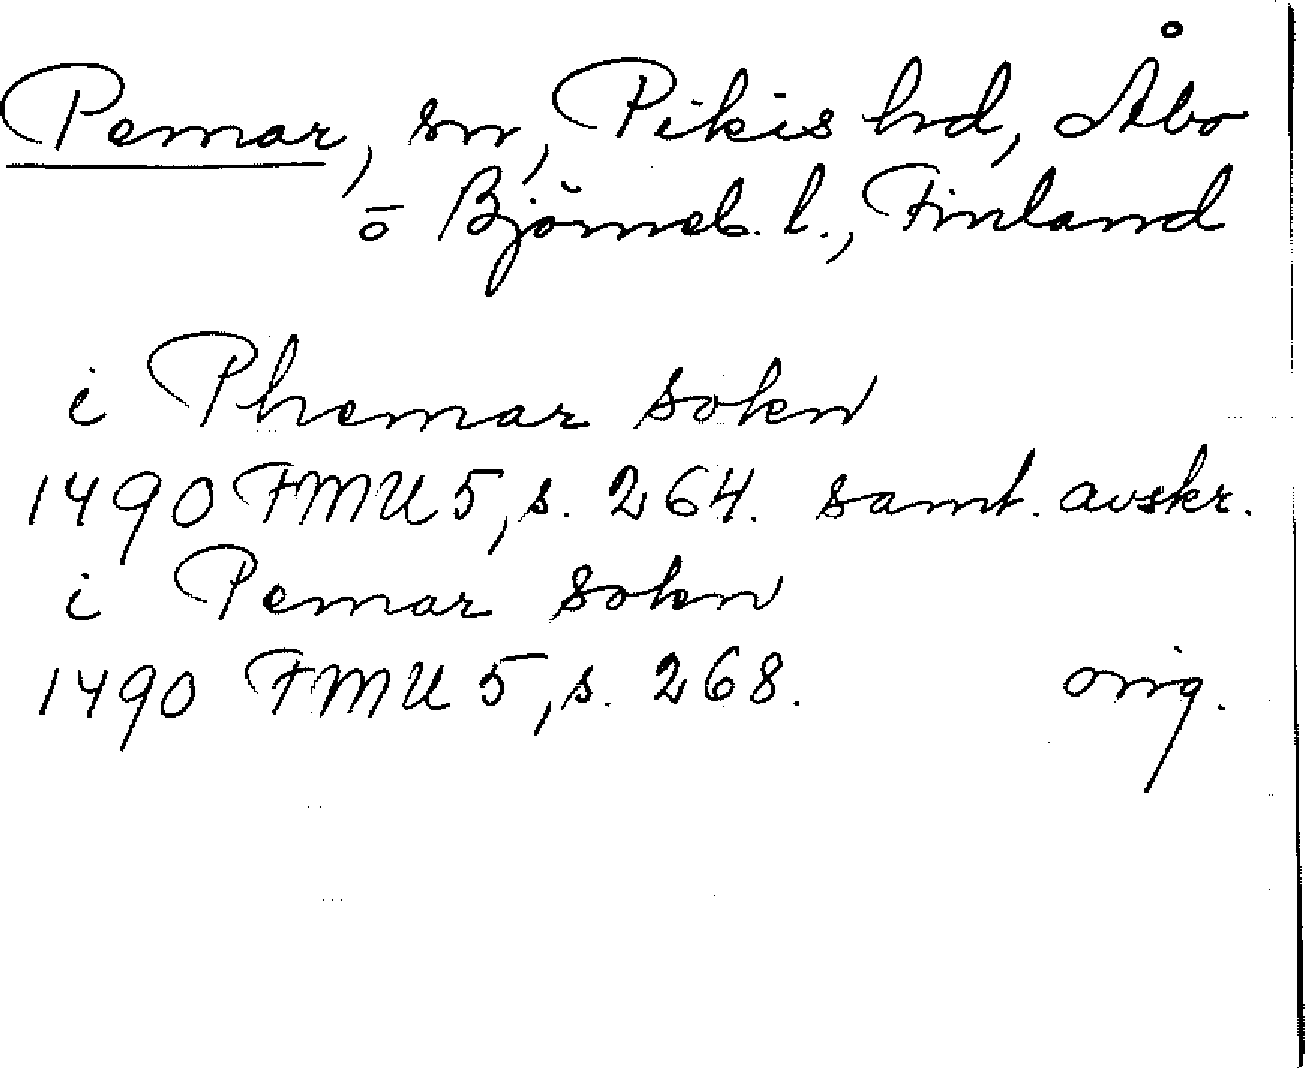 Pemar, sn, Pikis hd, Åbo
o Björneb. l., Finland
i Phemar sokn
1490 FMU 5, s. 264. samt. avskr.
i Pemar sokn
1490 FMU 5, s. 268. orig.